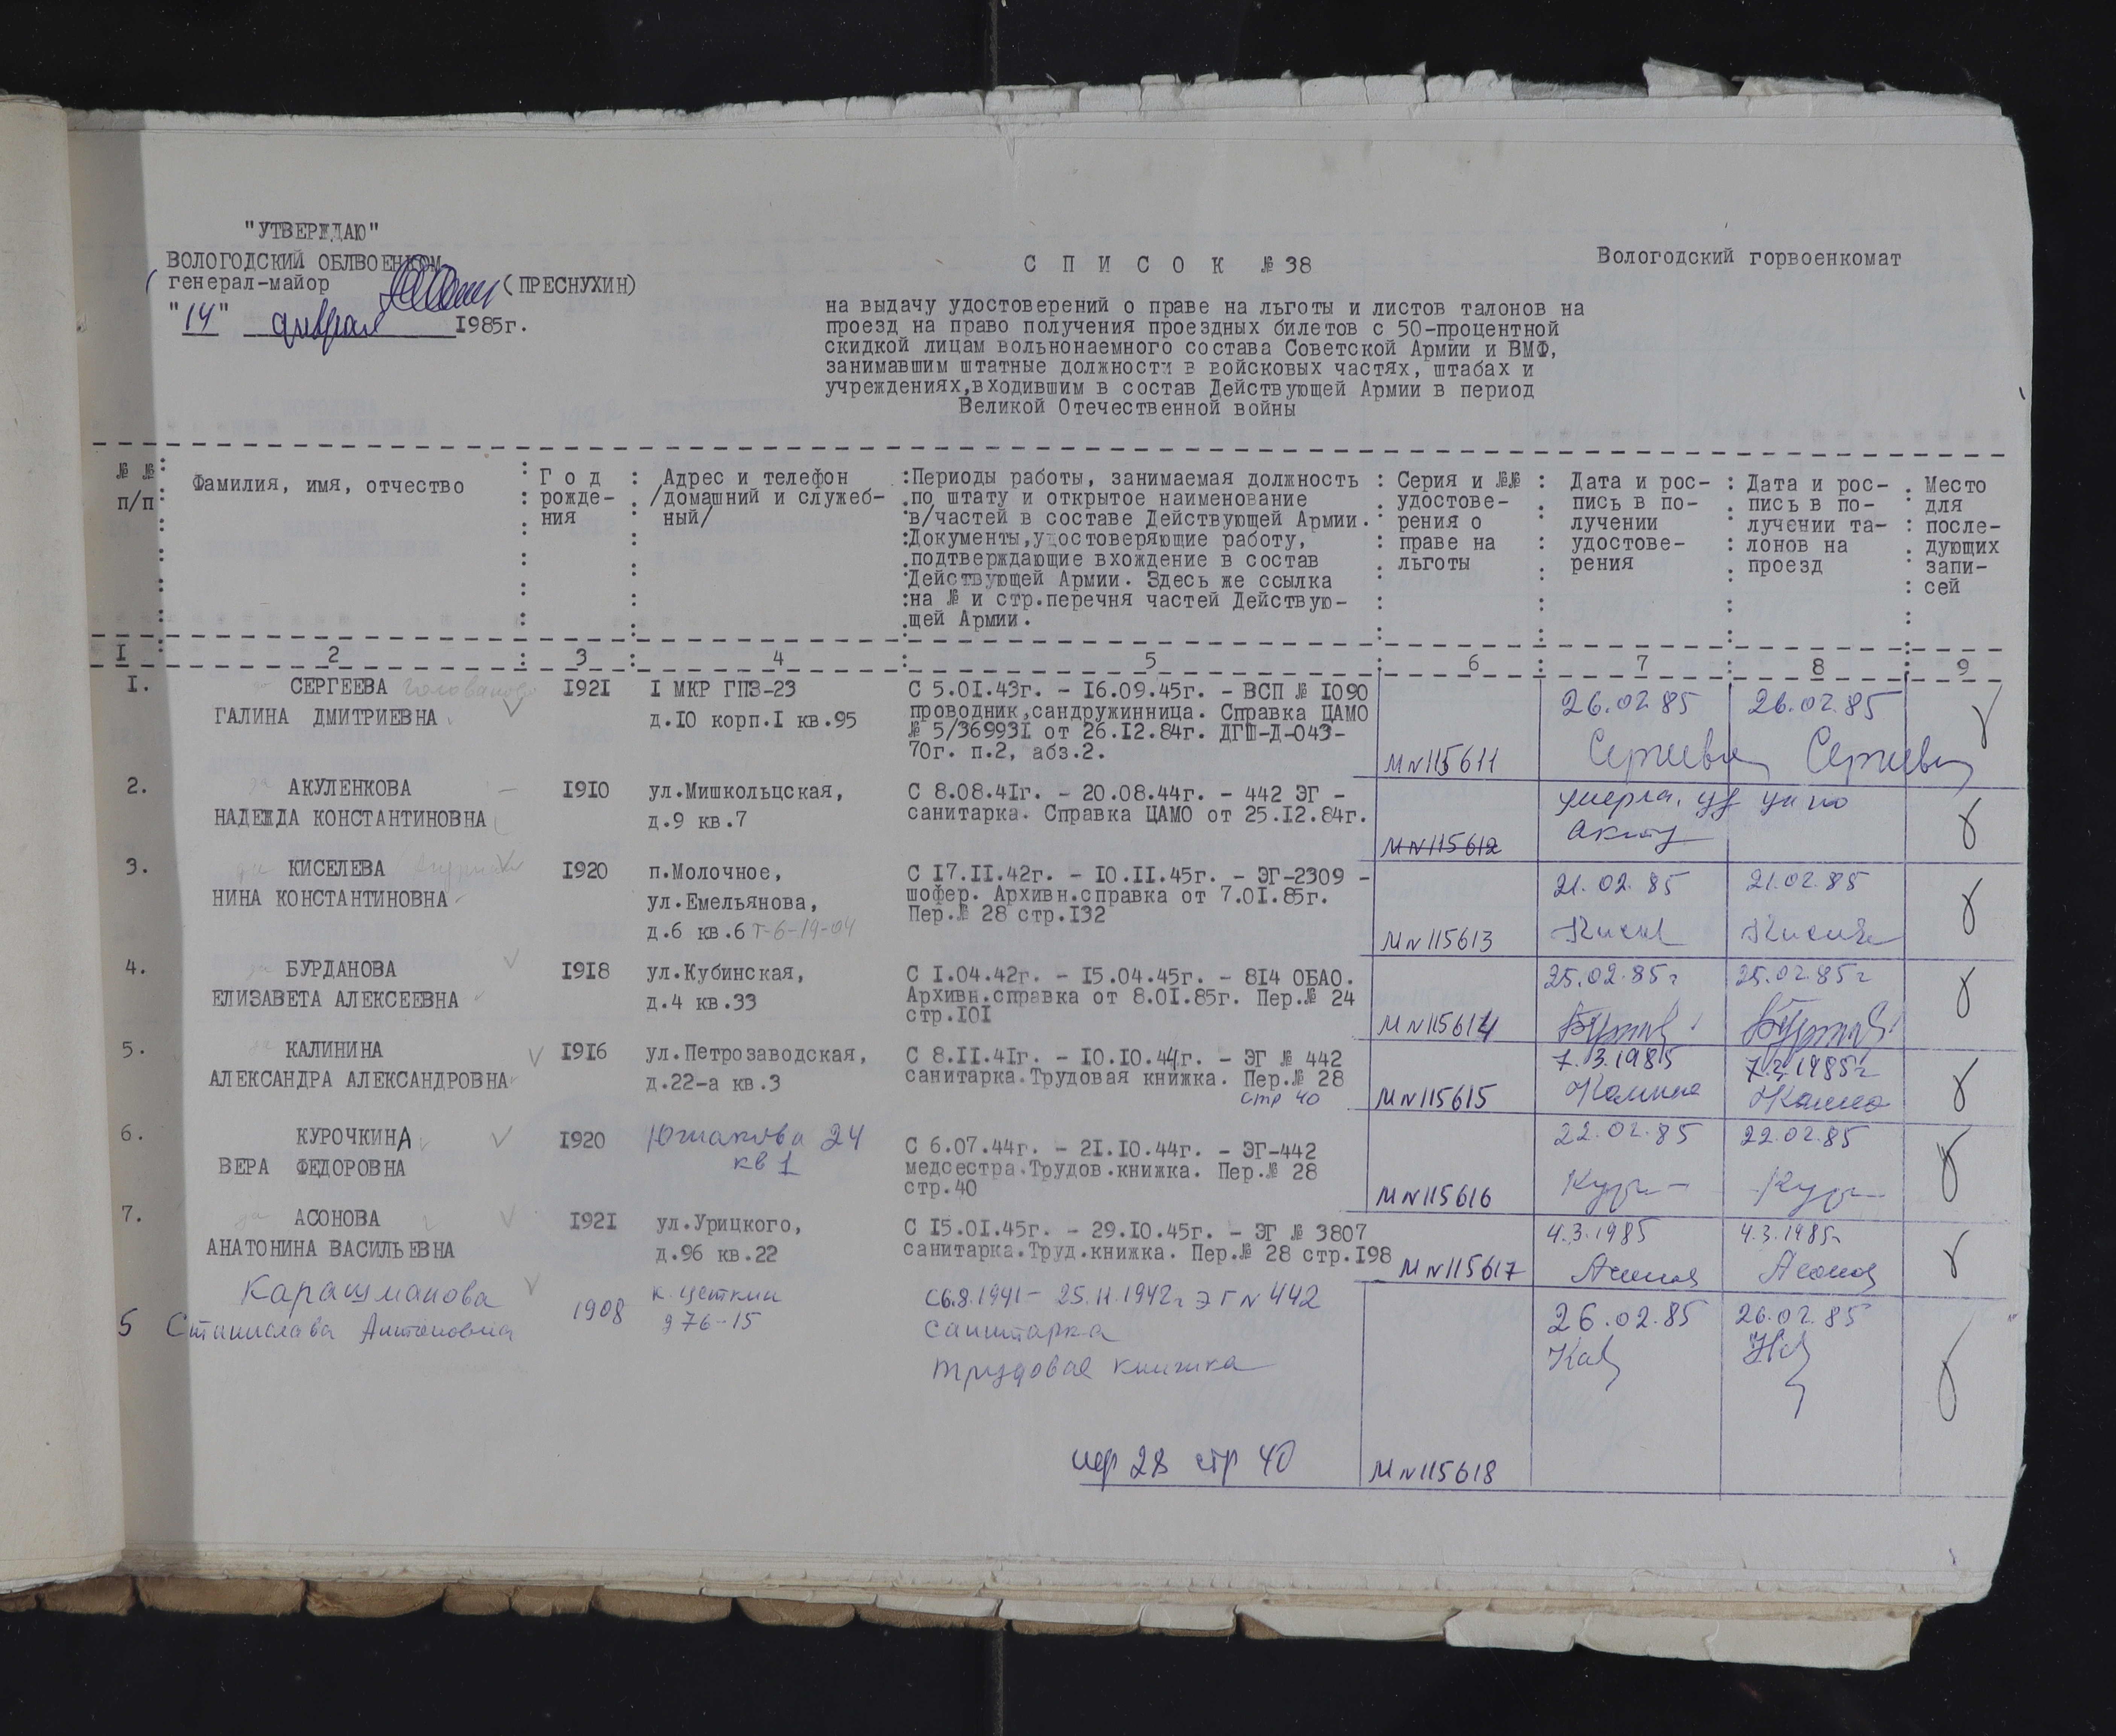 "УТВЕРЖДАЮ"
ВОЛОГОДСКИЙ ОБЛВОЕНКОМ
генерал-майор (ПРЕСНУХИН)
"14" февраля 1985г.
С П И С О К № 38
Вологодский горвоенкомат
на выдачу удостоверений о праве на льготы и листов талонов на
проезд на право получения проездных билетов с 50-процентной
скидкой лицам вольнонаемного состава Советской Армии и ВМФ,
занимавшим штатные должности в войсковых частях, штабах и
учреждениях,входившим в состав Действующей Армии в период
Великой Отечественной войны
№ №
п/п
Фамилия, имя, отчество
Г о д
рожде-
ния
Адрес и телефон
/домашний и служеб-
ный/
Периоды работы, занимаемая должность
по штату и открытое наименование
в/частей в составе Действующей Армии.
Документы,удостоверяющие работу,
подтверждающие вхождение в состав
Действующей Армии. Здесь же ссылка
на № и стр.перечня частей Действую-
щей Армии.
Серия и №№
удостове-
рения о
праве на
льготы
Дата и рос-
пись в по-
лучении
удостове-
рения
Дата и рос-
пись в по-
лучении та-
лонов на
проезд
Место
для
после-
дующих
запи-
сей
I 2 3 4 5 6 7 8 9
I. СЕРГЕЕВА
ГАЛИНА ДМИТРИЕВНА
I92I
I МКР ГПЗ-23
д.IO корп.I кв.95
С 5.0I.43г. - I6.09.45г. - ВСП № I090
проводник,сандружинница. Справка ЦАМО
№ 5/36993I от 26.I2.84г. ДГШ-Д-043-
70г. п.2, абз.2.
М№115611
26.02.85
Сергеева
26.02.85
Сергеева
2. АКУЛЕНКОВА
НАДЕЖДА КОНСТАНТИНОВНА
I9IO
ул.Мишкольцская,
д.9 кв.7
С 8.08.4Iг. - 20.08.44г. - 442 ЭГ -
санитарка. Справка ЦАМО от 25.I2.84г.
М№115612
умерла, уд по
акту
3. КИСЕЛЕВА
НИНА КОНСТАНТИНОВНА
I920
п.Молочное,
ул.Емельянова,
д.6 кв.6 т-6-19-04
С I7.II.42г. - IO.II.45г. - ЭГ-2309 -
шофер. Архивн.справка от 7.0I.85г.
Пер.№ 28 стр.I32
М№115613
21.02.85
21.02.85
4. БУРДАНОВА
ЕЛИЗАВЕТА АЛЕКСЕЕВНА
I9I8
ул.Кубинская,
д.4 кв.33
С I.04.42г. - I5.04.45г. - 8I4 ОБАО.
Архивн.справка от 8.0I.85г. Пер.№ 24
стр.IOI
М№115614
25.02.85г
25.02.85г
5. КАЛИНИНА
АЛЕКСАНДРА АЛЕКСАНДРОВНА
I9I6
ул.Петрозаводская,
д.22-а кв.3
С 8.II.4Iг. - IO.IO.44г. - ЭГ № 442
санитарка.Трудовая книжка. Пер.№ 28
стр 40
М№115615
7.3.1985
Калинина
7.3.1985г
6. КУРОЧКИНА
ВЕРА ФЕДОРОВНА
I920
Южакова 24
кв 1
С 6.07.44г. - 2I.IO.44г. - ЭГ-442
медсестра.Трудов.книжка. Пер.№ 28
стр.40
М№115616
22.02.85
22.02.85
7. АСОНОВА
АНАТОНИНА ВАСИЛЬЕВНА
I92I
ул.Урицкого,
д.96 кв.22
С I5.0I.45г. - 29.IO.45г. - ЭГ № 3807
санитарка.Труд.книжка. Пер.№ 28 стр.I98
М№115617
4.3.1985
Асонова
4.3.1985г
Асонова
Карашманова
5 Станислава Антоновна
1908
К. Цеткин
976-15
С6.8.1941- 25.11.1942г ЭГ№442
санитарка
трудовая книжка
пер 28 стр 40
М№115618
26.02.85
26.02.85